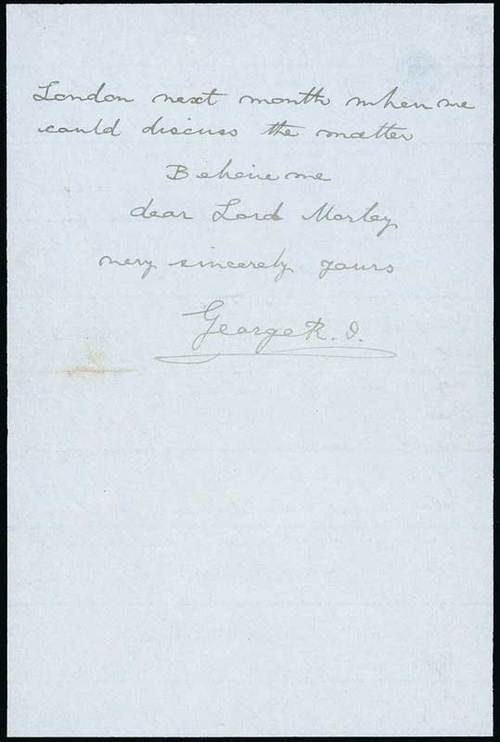 London next month when we
could discuss the matter
Believe me
dear Lord Morley
very sincerely yours
George R. I.